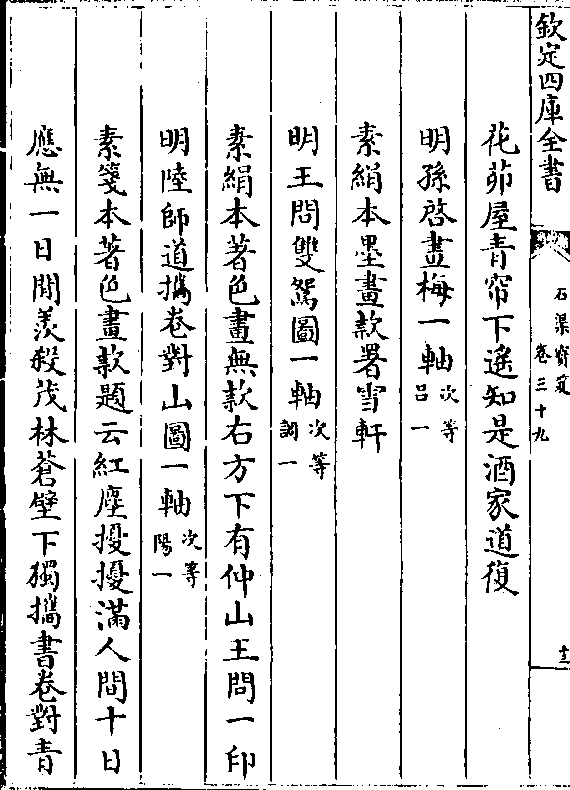 欽定四庫全書
石渠寳笈
卷三十九
十三
花茆屋青帘下遙知是酒家道復
明孫啓畫梅一軸次等吕一
素絹本墨畫款署雪軒
明王問雙鴛圖一軸次等調一
素絹本著色畫無款右方下有仲山王問一印
明陸師道攜卷對山圖一軸次等陽一
素箋本著色畫款題云紅塵擾擾滿人間十日
應無一日閒羨殺茂林蒼壁下獨攜書卷對青